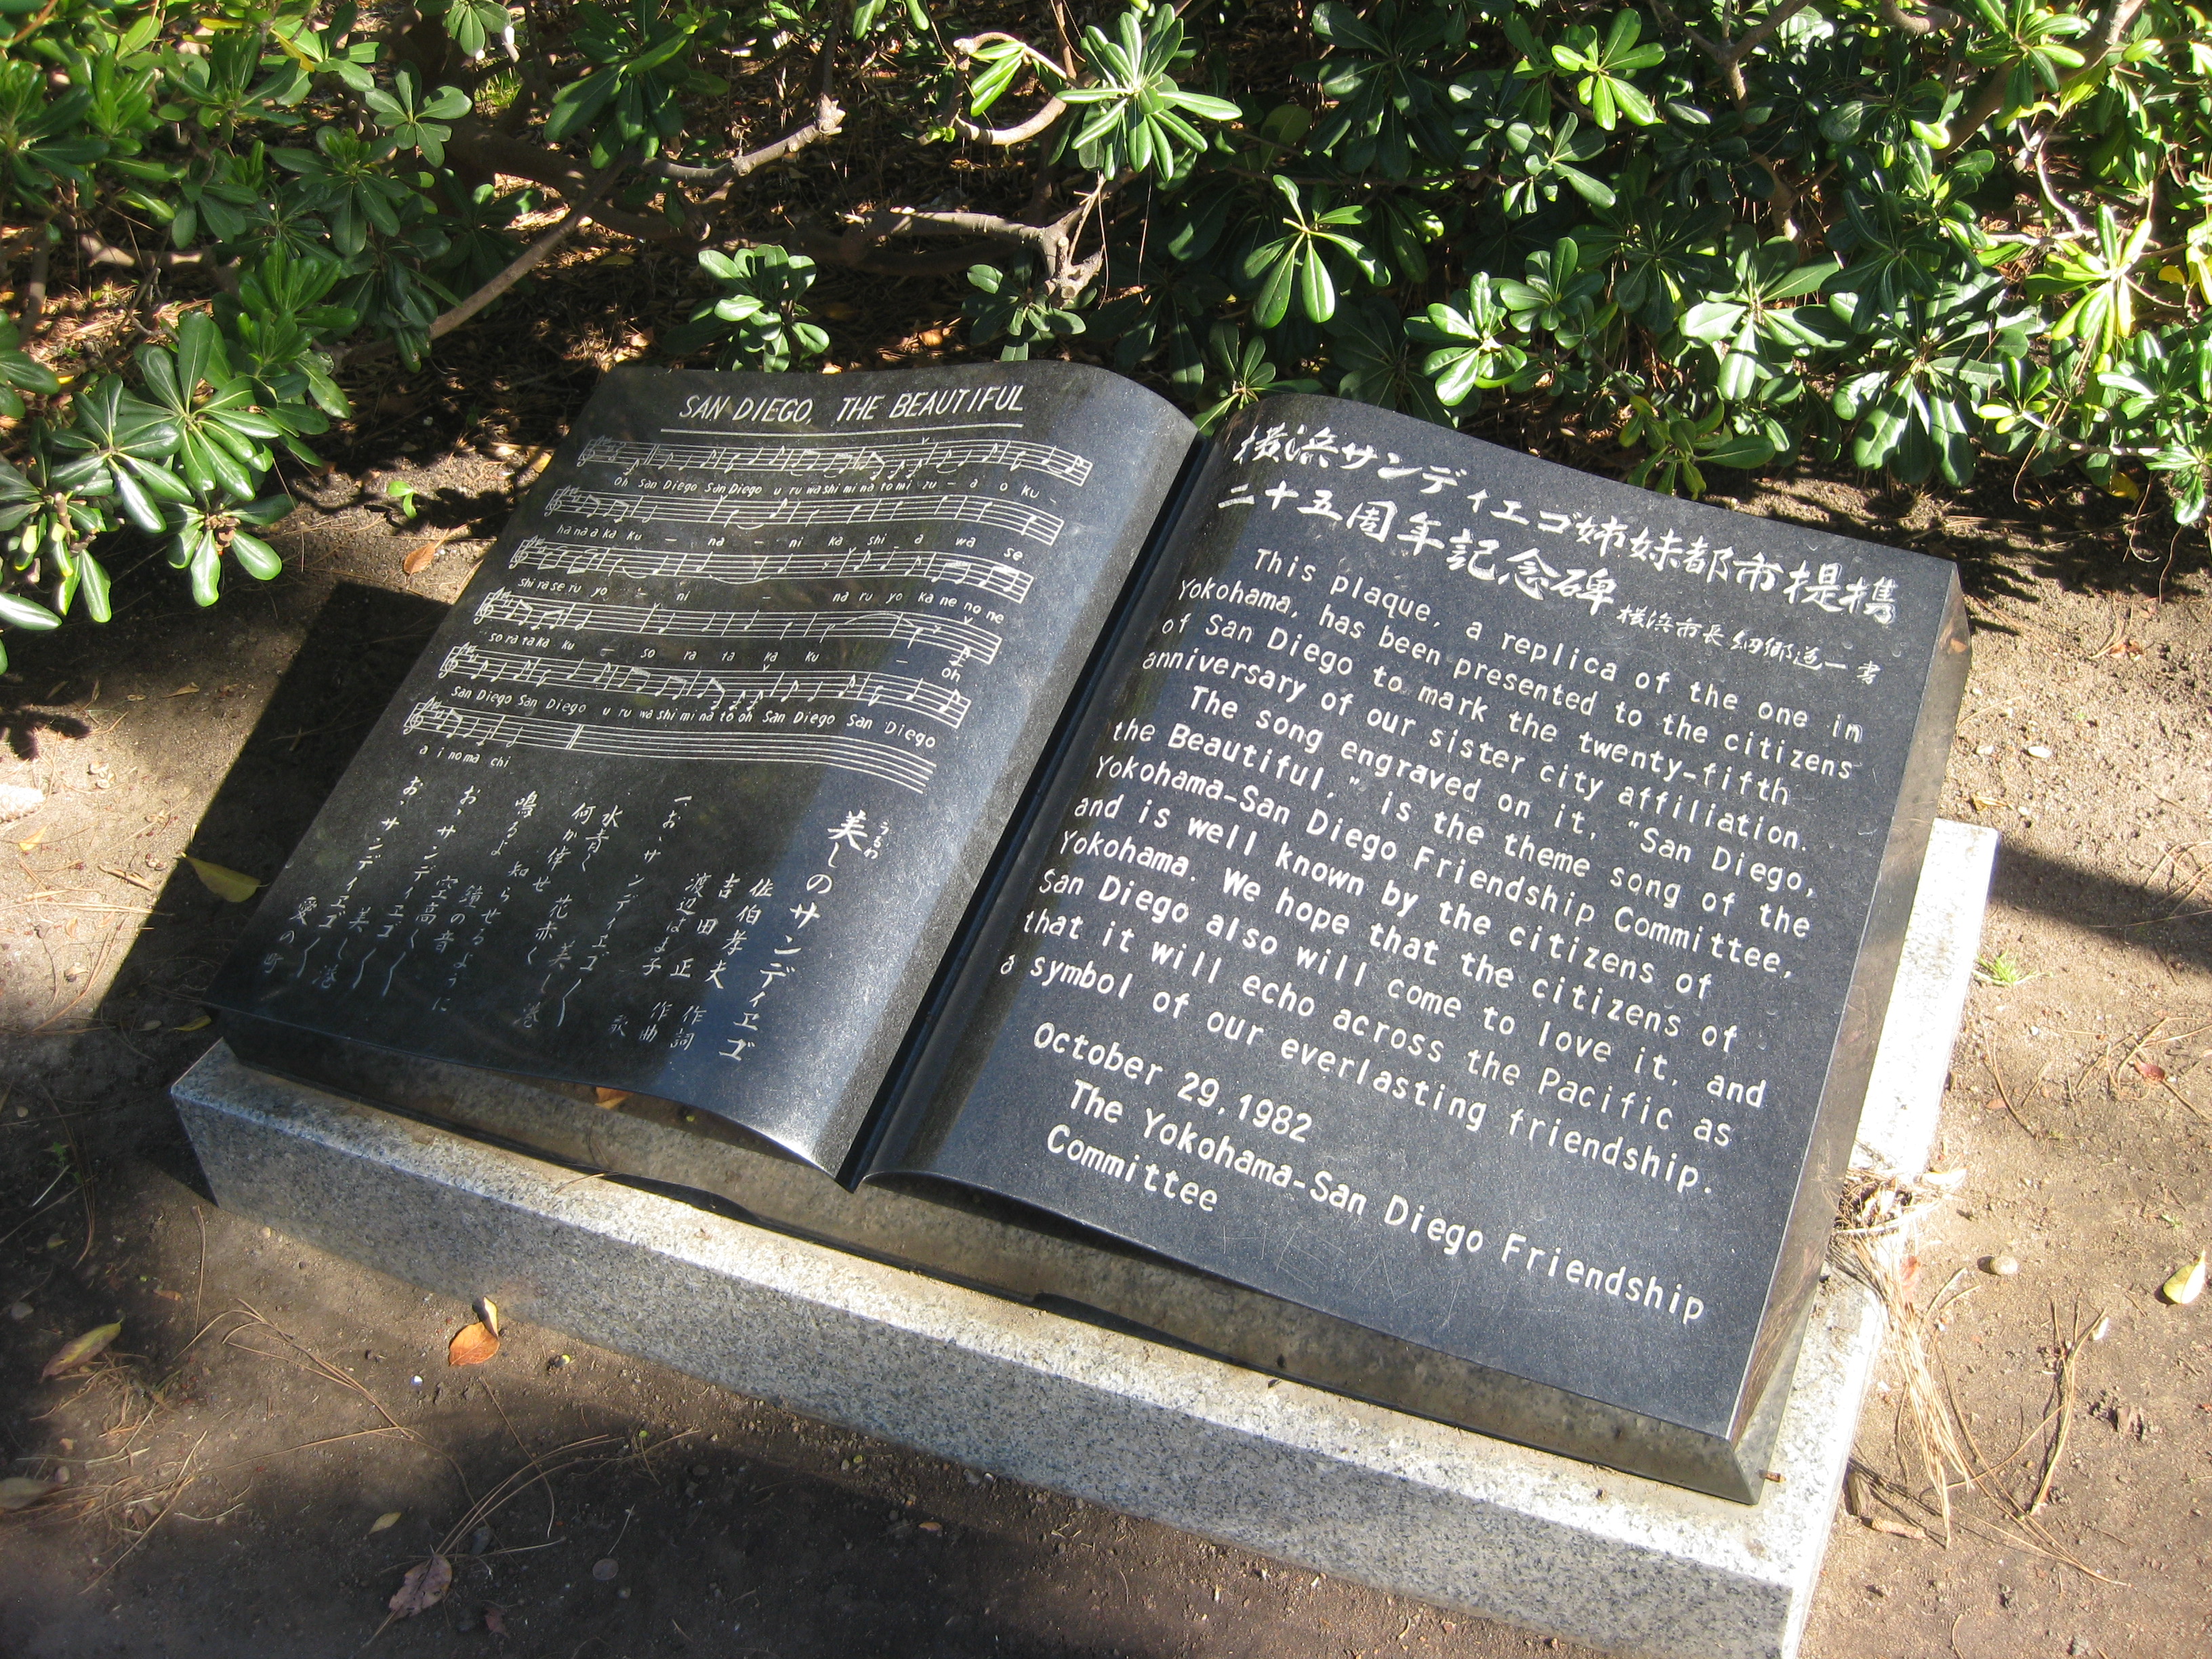 SAN DIEGO, THE BEAUTIFUL
Oh San Diego San Diego u ru wa shi mi na to mi ru – a o ku –
ha na a ka ku – na – ni ka shi a wa se
shi ra se ru yo – ni – na ru yo ka ne no ne
so ra ta ka ku – so ra ta ka ku – oh
San Diego San Diego u ru wa shi mi na to oh San Diego San Diego
a i no ma chi
美しのサンディエゴ
うるわ
佐伯孝夫 作詞
吉田 正 作曲
渡辺はま子 歌
一、お、サンディエゴ〱
美し港
水青く 花赤く
何か倖せ
知らせるように
鳴るよ 鐘の音
空高く〱
お、サンディエゴ〱
美し港
お、サンディエゴ〱
愛の町
横浜サンディエゴ姉妹都市提携
二十五周年記念碑
横浜市長 細郷道一 書
This plaque, a replica of the one in
Yokohama, has been presented to the citizens
of San Diego to mark the twenty-fifth
anniversary of our sister city affiliation.
The song engraved on it, "San Diego,
the Beautiful," is the theme song of the
Yokohama-San Diego Friendship Committee,
and is well known by the citizens of
Yokohama. We hope that the citizens of
San Diego also will come to love it, and
that it will echo across the Pacific as
a symbol of our everlasting friendship.
October 29, 1982
The Yokohama-San Diego Friendship
Committee